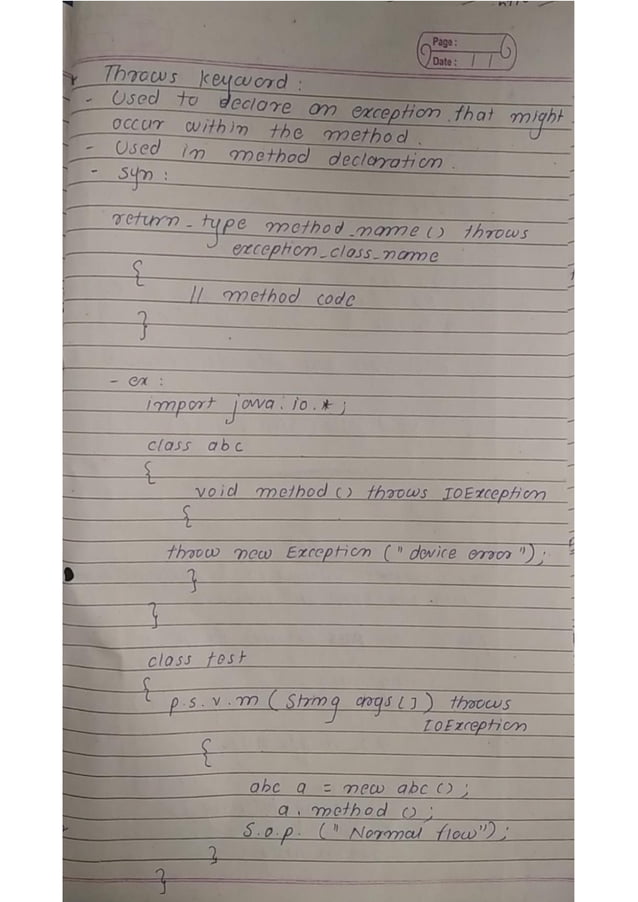 Page:
Date: / /
Throws keyword :
- Used to declare an exception that might
occur within the method.
- Used in method declaration.
- syn :
return_type method_name() throws
exception_class_name
{
// method code
}
- ex :
import java.io.*;
class abc
{
void method() throws IOException
{
throw new Exception ("device error");
}
}
class test
{
p.s.v.m (String args[]) throws
IOException
{
abc a = new abc();
a.method();
S.o.p. ("Normal flow");
}
}